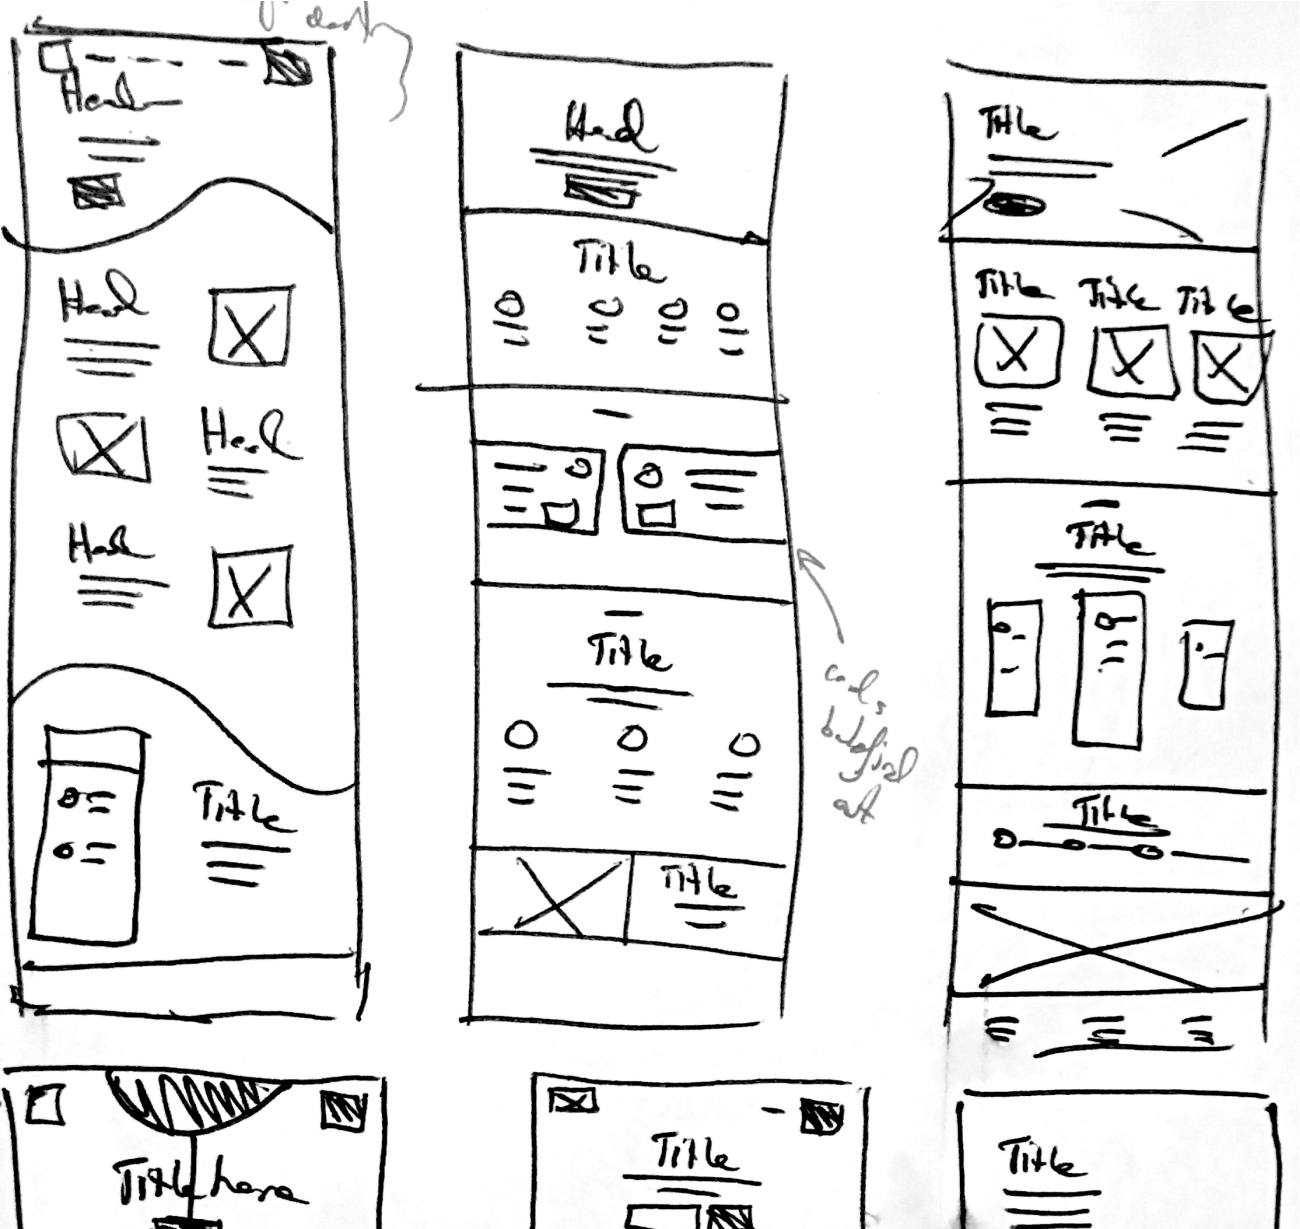 Header
Head
Head
Head
Title
Head
Title
Title
Title
Title
Title
Title
Title
Title
Title
cards
out
Title here
Title
Title